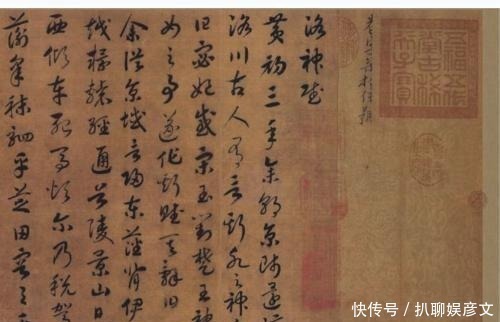 洛神賦
黄初三年余朝京師還
洛川古人有言斯水之神
曰宓妃感宋玉對楚王神
女之事遂作斯賦其辭曰
余從京域言歸東藩背伊
越轘轅經通谷陵景山日
西傾車殆馬煩爾乃稅駕
蘅皋秣駟乎芝田容與
快传号／扒聊娱彦文